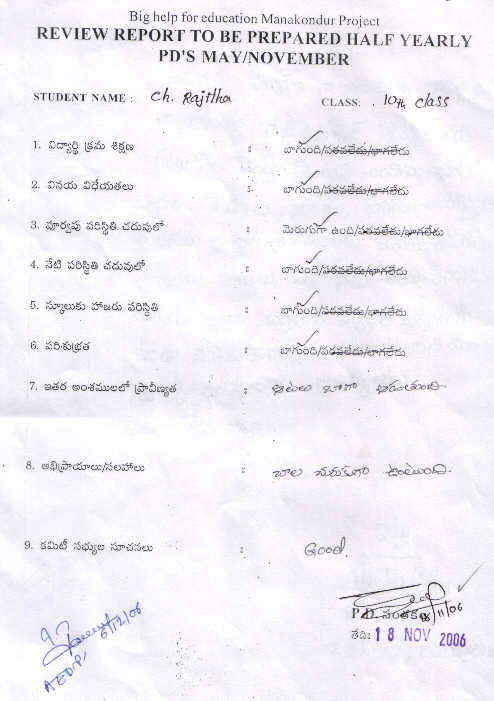 Big help for education Manakondur Project
REVIEW REPORT TO BE PREPARED HALF YEARLY
PD'S MAY/NOVEMBER
STUDENT NAME : Ch. Rajitha CLASS: 10th class
1. విద్యార్థి క్రమ శిక్షణ : బాగుంది/పరవలేదు/భాగలేదు
2. వినయ విధేయతలు : బాగుంది/పరవలేదు/భాగలేదు
3. పూర్వపు పరిస్థితి చదువులో : మెరుగుగా ఉంది/పరవలేదు/భాగలేదు
4. నేటి పరిస్థితి చదువులో : బాగుంది/పరవలేదు/భాగలేదు
5. స్కూలుకు హాజరు పరిస్థితి : బాగుంది/పరవలేదు/భాగలేదు
6. పరిశుభ్రత : బాగుంది/పరవలేదు/బాగలేదు
7. ఇతర అంశములలో ప్రావీణ్యత : ఆటలు బాగా ఆడుతుంది
8. అభిప్రాయాలు/సలహాలు : చాల చురుకుగా ఉంటుంది.
9. కమిటీ సభ్యుల సూచనలు : Good.
P.D. సంతకం 18/11/06
తేది: 18 NOV 2006
6/12/06
AEDP,